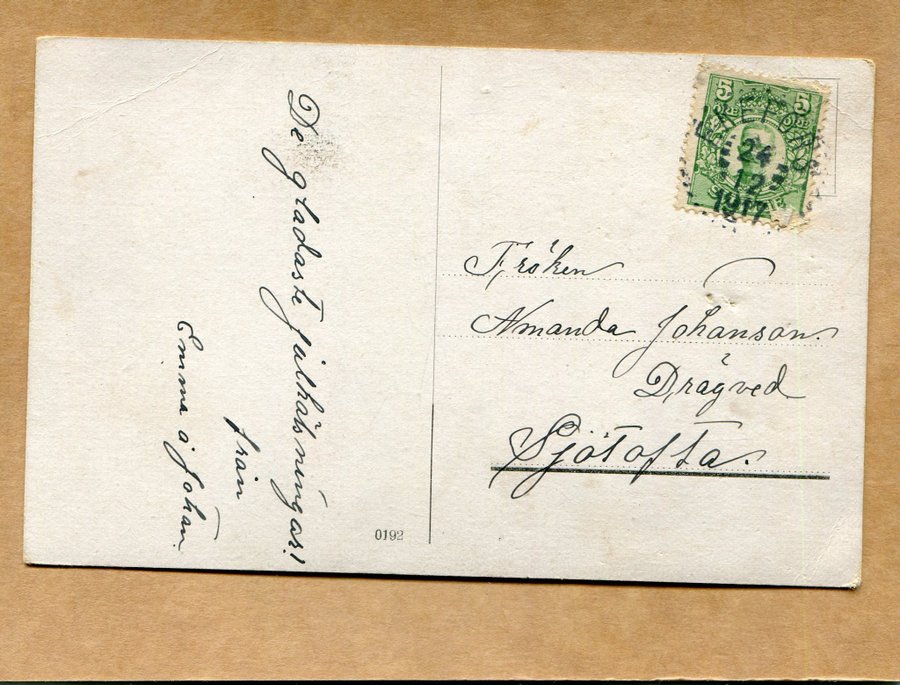 De gladaste julhälsningar!
från
Emma å Johan.
0192
5 5
24
12
1917
Fröken
Amanda Johanson.
Drägved
Sjötofta.